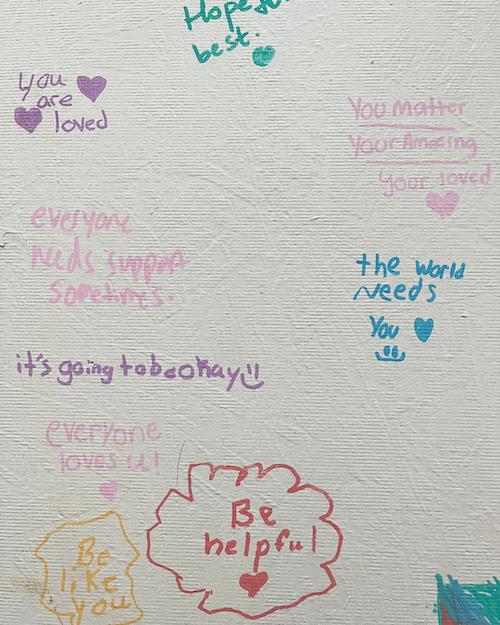 Hopeful
best.
you
are
loved
You Matter
Your Amazing
Your loved
everyone
needs support
sometimes.
the world
Needs
You
it's going to be okay
everyone
loves u!
Be
helpful
Be
like
you